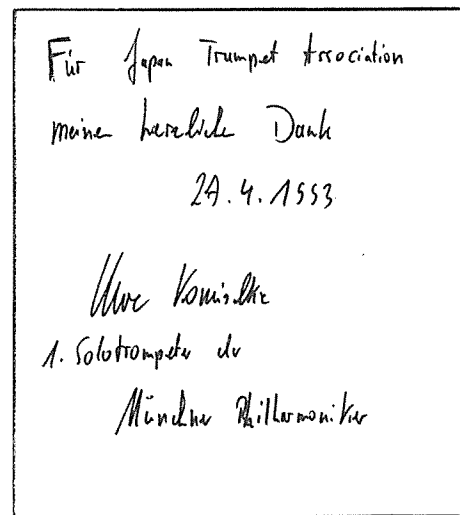 Für Japan Trumpet Association
meinen herzlichen Dank
21.4.1993
Uwe Komischke
1. Solotrompeter der
Münchner Philharmoniker